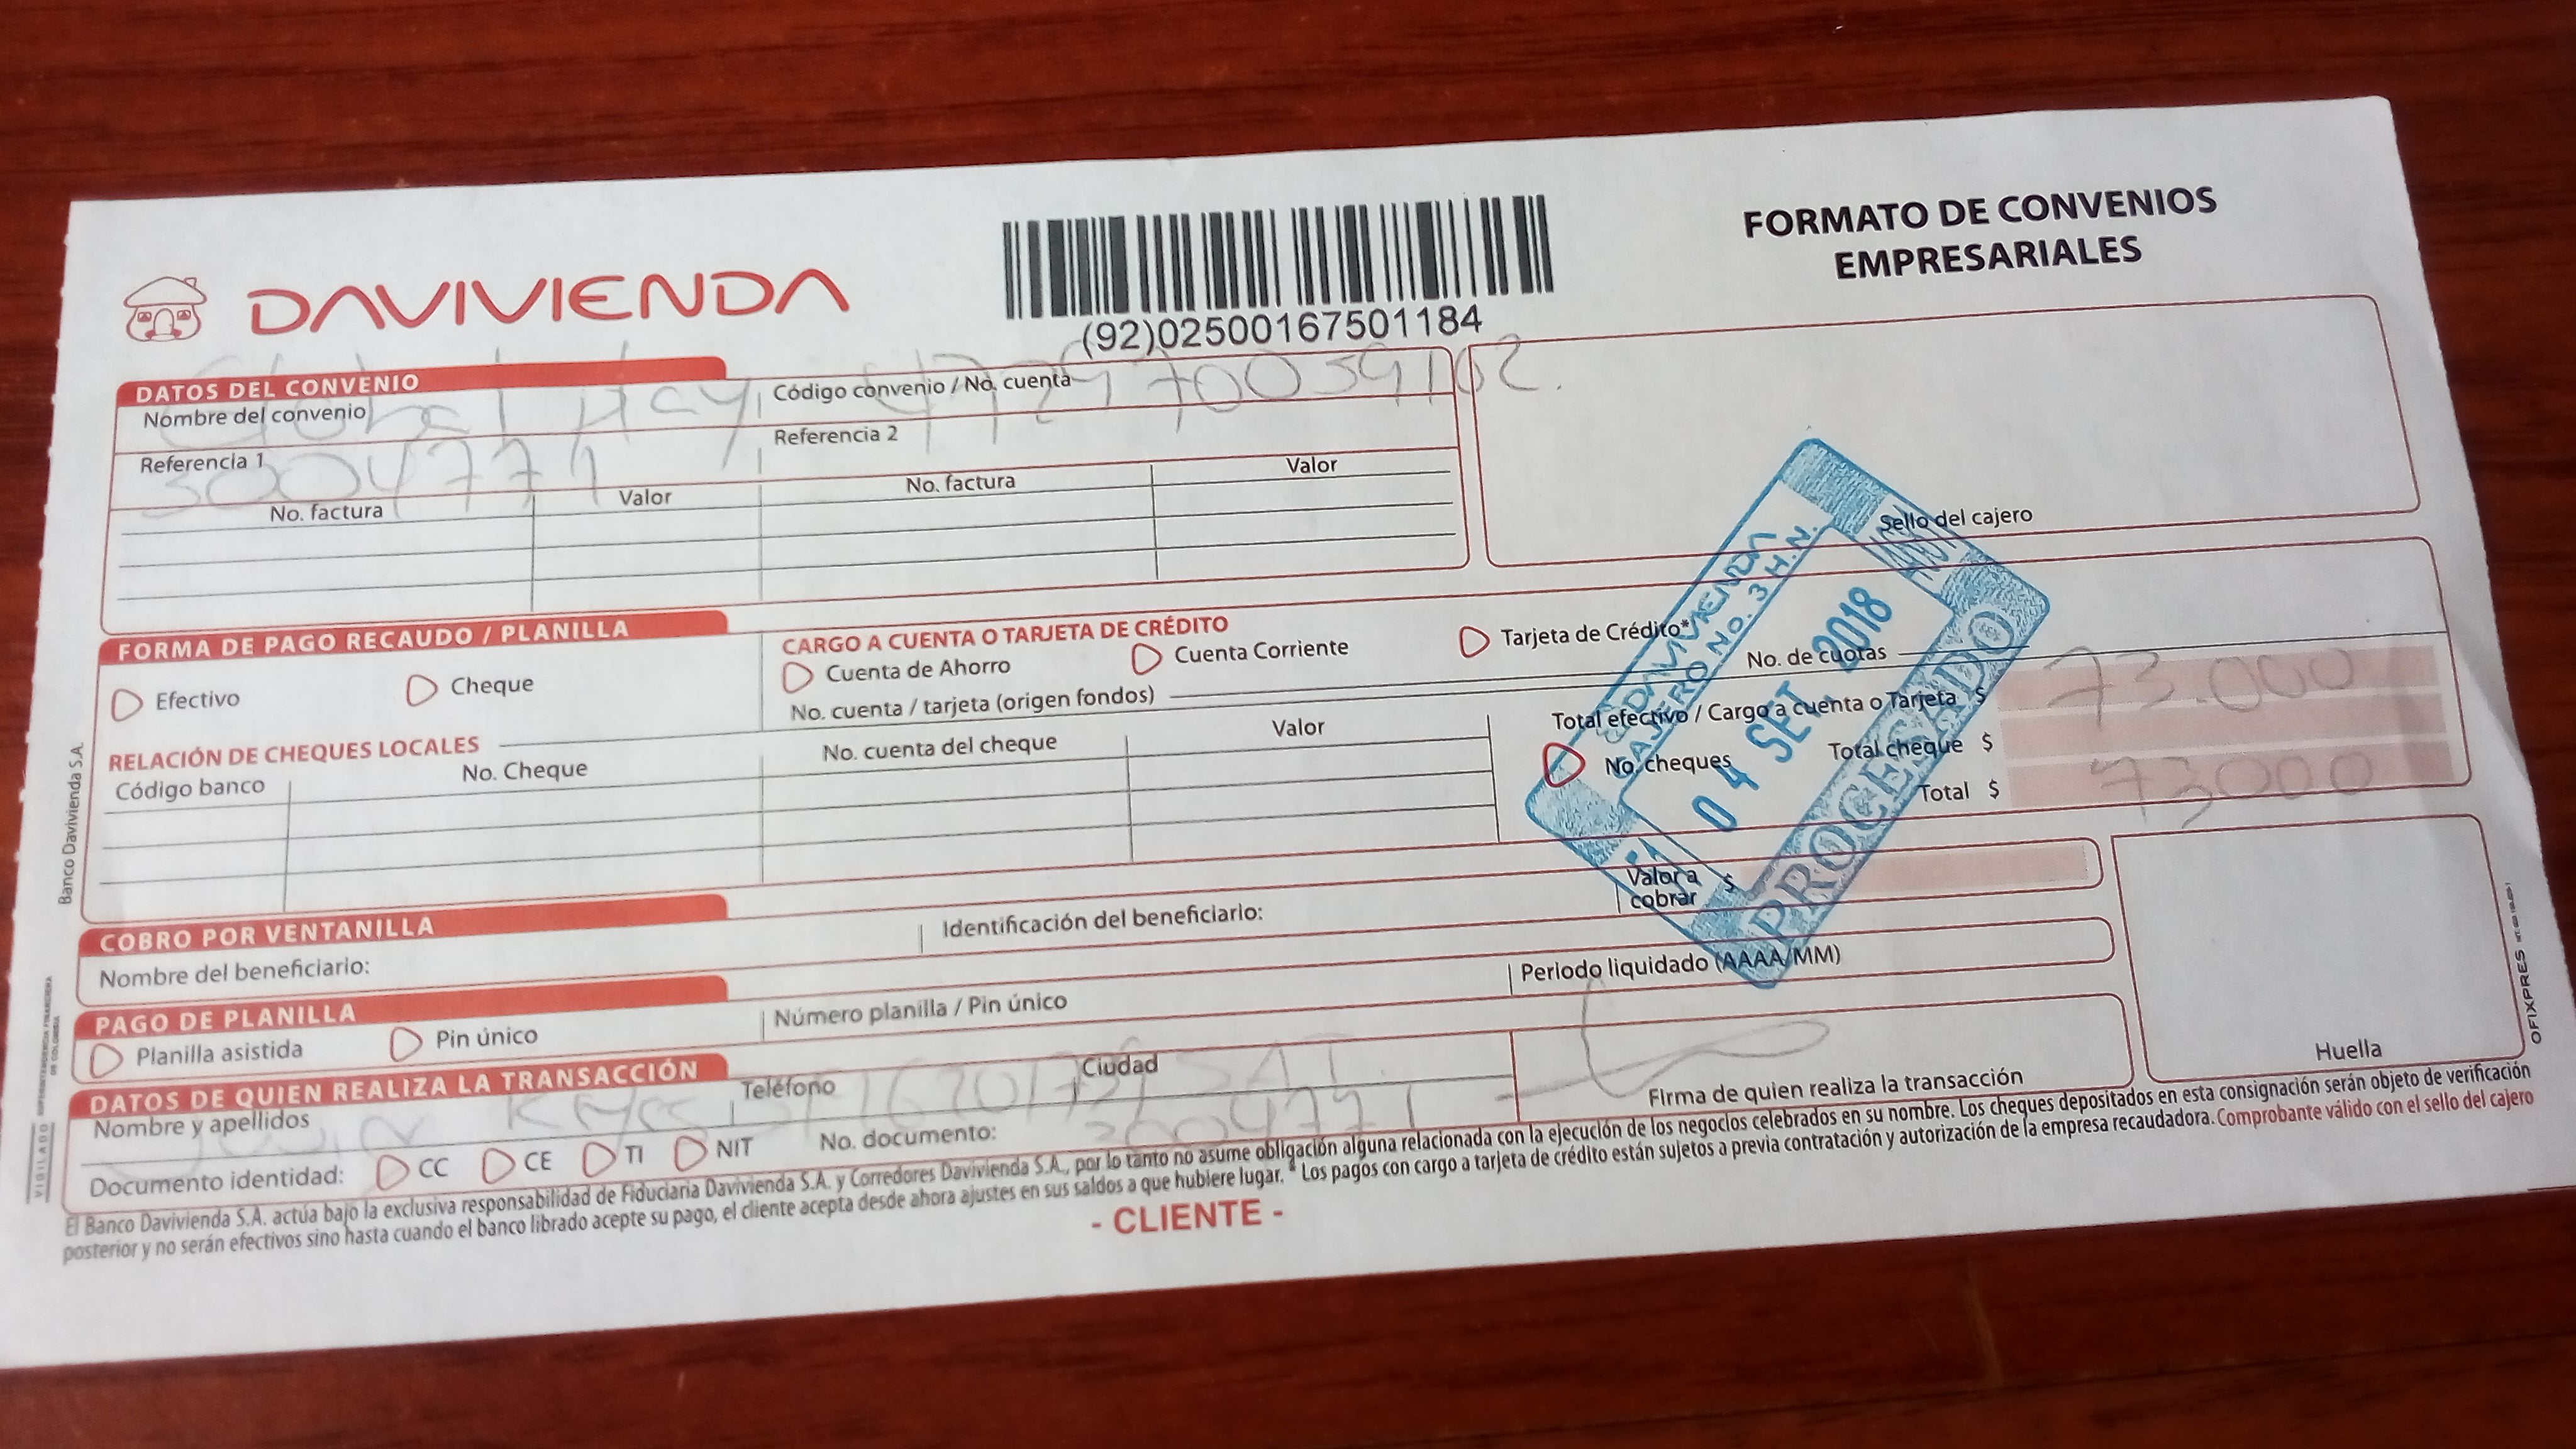 DAVIVIENDA
(92)02500167501184
FORMATO DE CONVENIOS
EMPRESARIALES
DATOS DEL CONVENIO
Nombre del convenio
Código convenio / No. cuenta
Referencia 1
3004771
Referencia 2
No. factura
Valor
No. factura
Valor
Sello del cajero
FORMA DE PAGO RECAUDO / PLANILLA
Efectivo
Cheque
CARGO A CUENTA O TARJETA DE CRÉDITO
Cuenta de Ahorro
Cuenta Corriente
Tarjeta de Crédito*
No. de cuotas
No. cuenta / tarjeta (origen fondos)
RELACIÓN DE CHEQUES LOCALES
Código banco
No. Cheque
No. cuenta del cheque
Valor
Total efectivo / Cargo a cuenta o Tarjeta $
73.000
No. cheques
Total cheque $
Total $
73000
DAVIVIENDA
CAJERO No. 3 H.N.
04 SET 2018
PROCESADO
COBRO POR VENTANILLA
Nombre del beneficiario:
Identificación del beneficiario:
Valor a
cobrar
$
PAGO DE PLANILLA
Planilla asistida
Pin único
Número planilla / Pin único
Periodo liquidado (AAAA/MM)
DATOS DE QUIEN REALIZA LA TRANSACCIÓN
Nombre y apellidos
Teléfono
Ciudad
Documento identidad:
CC
CE
TI
NIT
No. documento:
3004771
Firma de quien realiza la transacción
Huella
El Banco Davivienda S.A. actúa bajo la exclusiva responsabilidad de Fiduciaria Davivienda S.A. y Corredores Davivienda S.A., por lo tanto no asume obligación alguna relacionada con la ejecución de los negocios celebrados en su nombre. Los cheques depositados en esta consignación serán objeto de verificación
posterior y no serán efectivos sino hasta cuando el banco librado acepte su pago, el cliente acepta desde ahora ajustes en sus saldos a que hubiere lugar. * Los pagos con cargo a tarjeta de crédito están sujetos a previa contratación y autorización de la empresa recaudadora. Comprobante válido con el sello del cajero
- CLIENTE -
Banco Davivienda S.A.
VIGILADO SUPERINTENDENCIA FINANCIERA
DE COLOMBIA
OFIXPRES